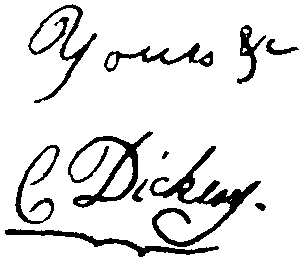 Yours &c
C Dickey.